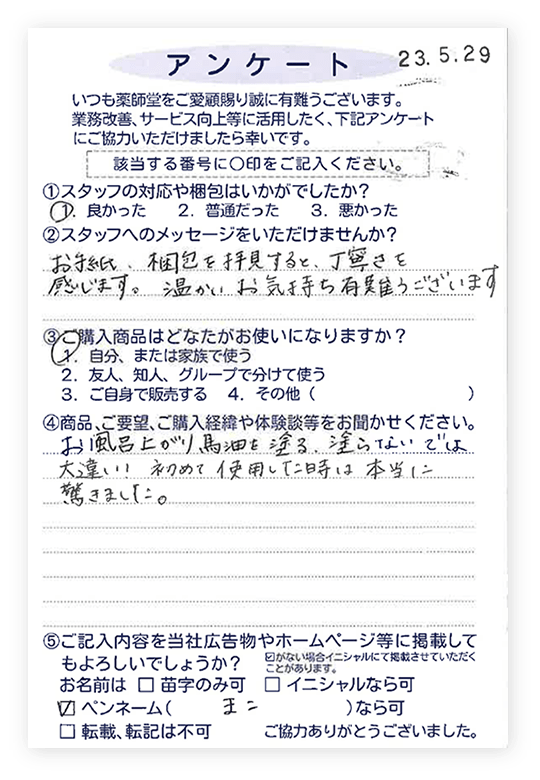 アンケート
23.5.29
いつも薬師堂をご愛顧賜り誠に有難うございます。
業務改善、サービス向上等に活用したく、下記アンケート
にご協力いただけましたら幸いです。
該当する番号に〇印をご記入ください。
①スタッフの対応や梱包はいかがでしたか？
1. 良かった　2. 普通だった　3. 悪かった
②スタッフへのメッセージをいただけませんか？
お手紙、梱包を拝見すると、丁寧さを
感じます。温かいお気持ち有難うございます
③ご購入商品はどなたがお使いになりますか？
1. 自分、または家族で使う
2. 友人、知人、グループで分けて使う
3. ご自身で販売する　4. その他（　　　　）
④商品、ご要望、ご購入経緯や体験談等をお聞かせください。
お風呂上がり馬油を塗る、塗らないでは
大違い! 初めて使用した時は本当に
驚きました。
⑤ご記入内容を当社広告物やホームページ等に掲載して
もよろしいでしょうか？　☑がない場合イニシャルにて掲載させていただく
ことがあります。
お名前は　□ 苗字のみ可　□ イニシャルなら可
☑ ペンネーム（　　　）なら可
□ 転載、転記は不可　ご協力ありがとうございました。